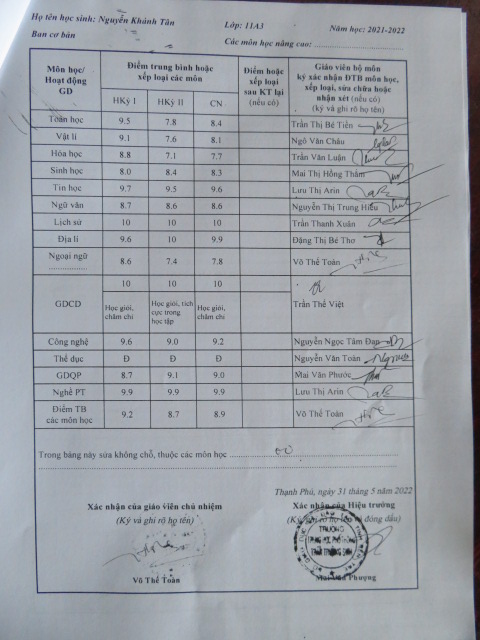 Họ tên học sinh: Nguyễn Khánh Tân Lớp: 11A3 Năm học: 2021-2022
Ban cơ bản Các môn học nâng cao:
Môn học/ Hoạt động GD Điểm trung bình hoặc xếp loại các môn Điểm hoặc xếp loại sau KT lại (nếu có) Giáo viên bộ môn ký xác nhận ĐTB môn học, xếp loại, sửa chữa hoặc nhận xét (nếu có) (ký và ghi rõ họ tên)
HKỳ I HKỳ II CN
Toán học 9.5 7.8 8.4 Trần Thị Bé Tiền
Vật lí 9.1 7.6 8.1 Ngô Văn Châu
Hóa học 8.8 7.1 7.7 Trần Văn Luận
Sinh học 8.0 8.4 8.3 Mai Thị Hồng Thắm
Tin học 9.7 9.5 9.6 Lưu Thị Arin
Ngữ văn 8.7 8.6 8.6 Nguyễn Thị Trung Hiếu
Lịch sử 10 10 10 Trần Thanh Xuân
Địa lí 9.6 10 9.9 Đặng Thị Bé Thơ
Ngoại ngữ 8.6 7.4 7.8 Võ Thế Toàn
GDCD 10 10 10 Trần Thế Việt
Học giỏi, chăm chỉ Học giỏi, tích cực trong học tập Học giỏi, chăm chỉ
Công nghệ 9.6 9.0 9.2 Nguyễn Ngọc Tâm Đan
Thể dục Đ Đ Đ Nguyễn Văn Toàn
GDQP 8.7 9.1 9.0 Mai Văn Phước
Nghề PT 9.9 9.9 9.9 Lưu Thị Arin
Điểm TB các môn học 9.2 8.7 8.9 Võ Thế Toàn
Trong bảng này sửa không chỗ, thuộc các môn học
Thạnh Phú, ngày 31 tháng 5 năm 2022
Xác nhận của giáo viên chủ nhiệm Xác nhận của Hiệu trưởng
(Ký và ghi rõ họ tên) (Ký, ghi rõ họ tên và đóng dấu)
TRƯỜNG
TRUNG HỌC PHỔ THÔNG
Võ Thế Toàn Mai Văn Phượng